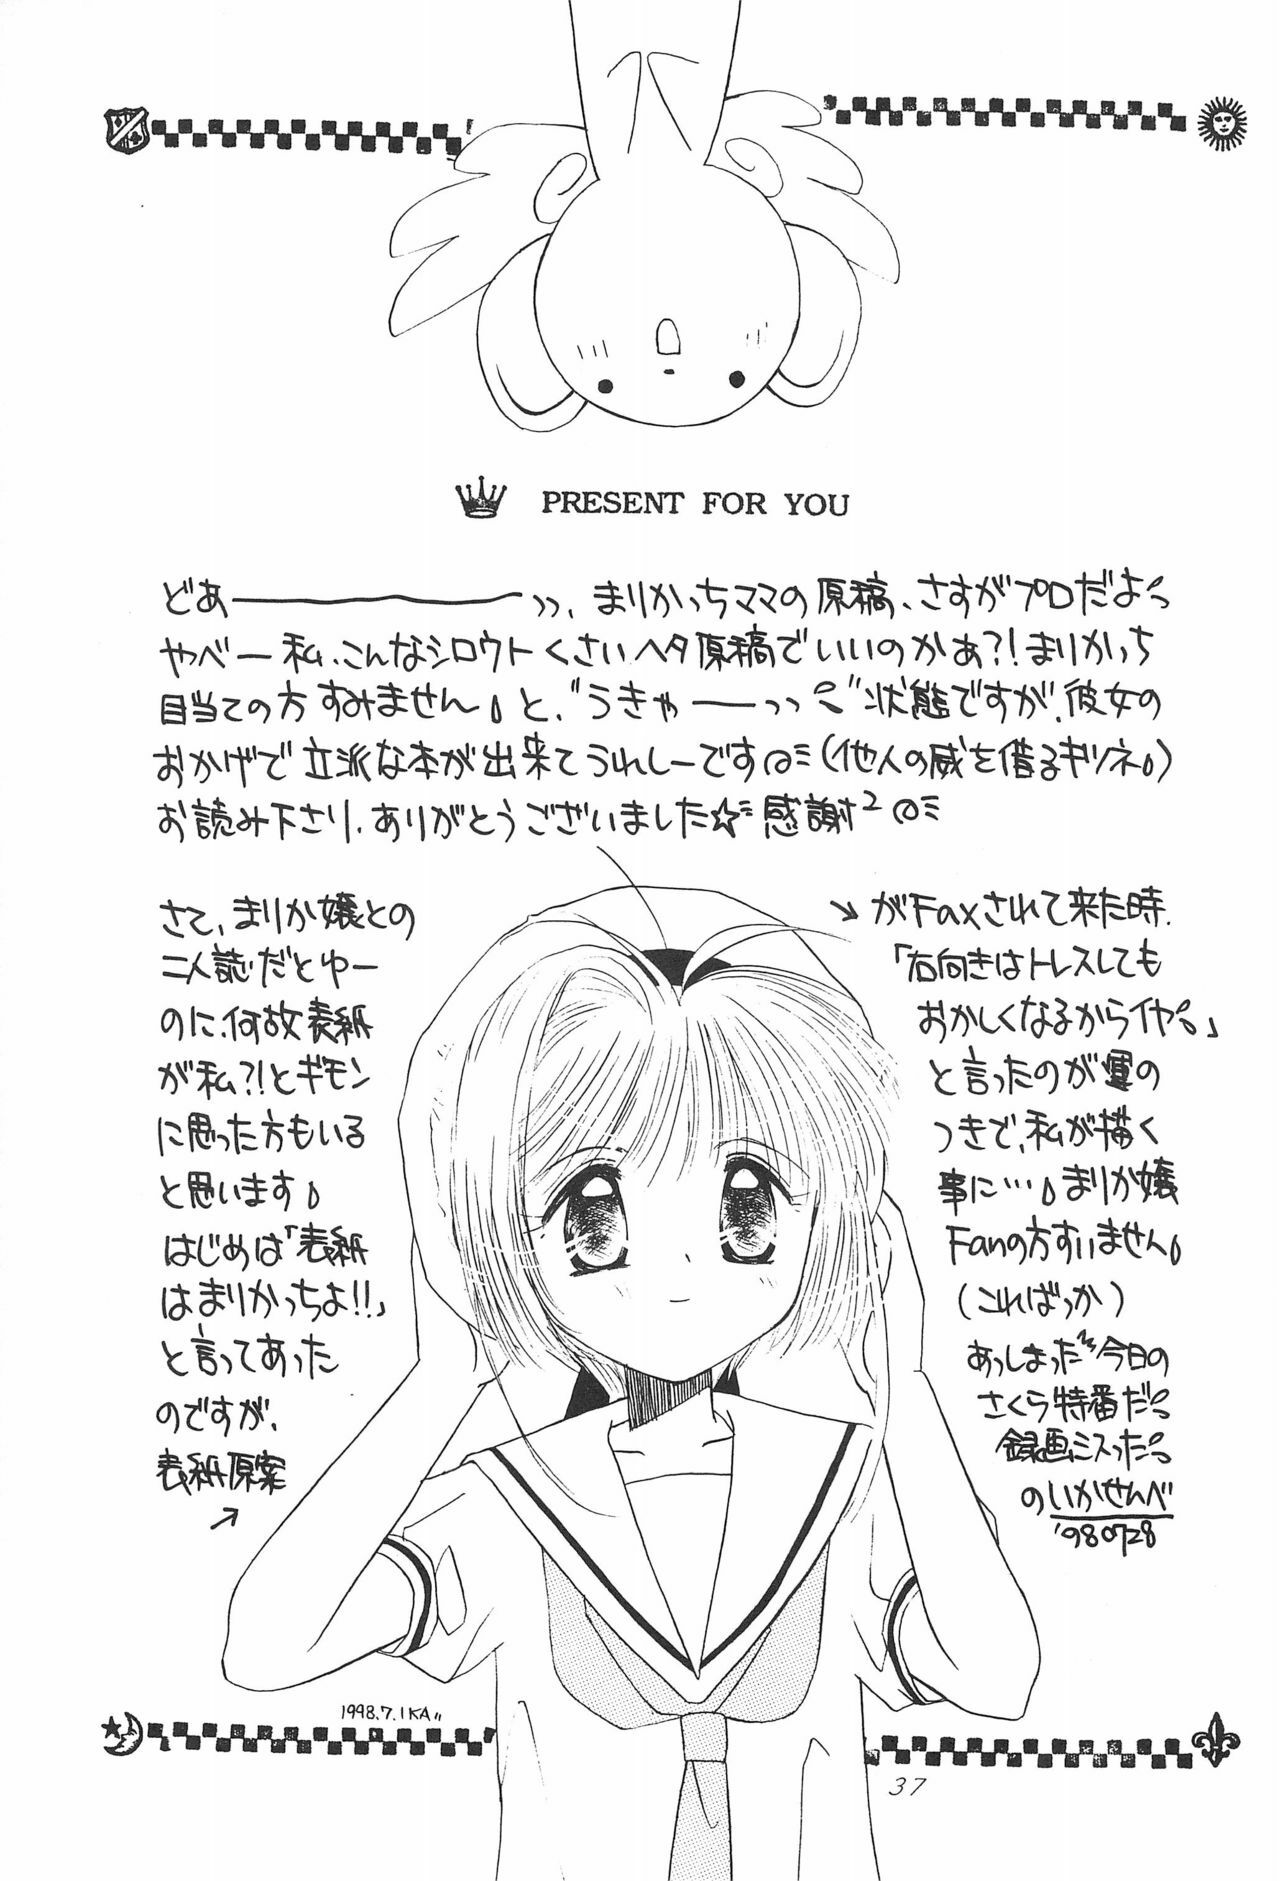 PRESENT FOR YOU
どあ――――ッ、まりかっちママの原稿、さすがプロだよっ
やべー私、こんなシロウトくさいヘタ原稿でいいのかぁ?!まりかっち
目当ての方すみません。と、"うきゃーーっっ"状態ですが、彼女の
おかげで立派な本が出来てうれしーです(他人の威を借るキツネ。)
お読み下さり、ありがとうございました☆感謝²
さて、まりか嬢との
二人誌だとゆー
のに、何故表紙
が私?!とギモン
に思った方もいる
と思います。
はじめは「表紙
はまりかっちよ!!」
と言ってあった
のですが、
表紙原案
↗
↘がFaxされて来た時、
「右向きはトレスしても
おかしくなるからイヤ。」
と言ったのが運の
つきで、私が描く
事に…。まりか嬢
Fanの方すいません。
(こればっか)
あっしまった今日の
さくら特番だっ
録画ミスったっ
のいかせんべ
'980728
1998.7.IKA"
37